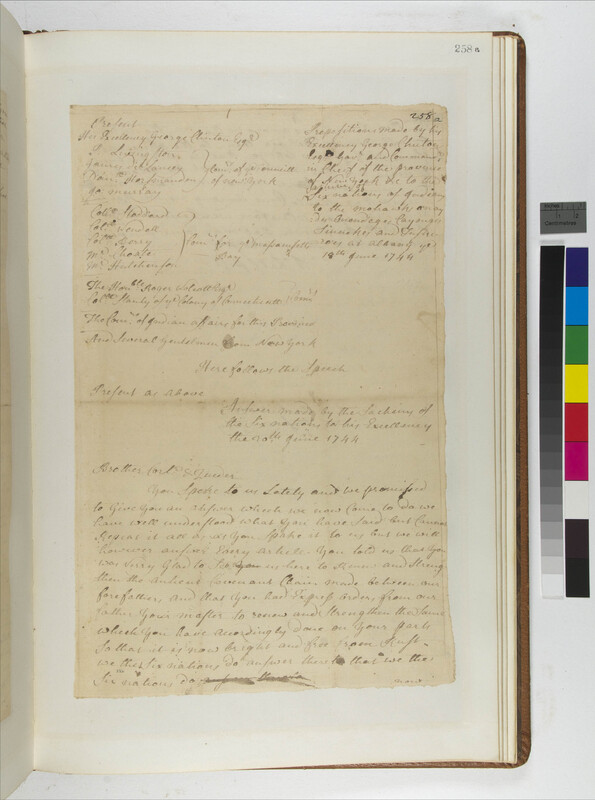 258a
258a
Present
His Excellency George Clinton Esqr
P. Livingston
James De Lancey
Danl Horsmanden
Jo Murray
Comrs of ye Council of New York
Propositions made by his
Excellency George Clinton
Esqr Capt and Commandr
in Chief of the province
of New York &c to the
Six nations of Indians
to the mohawks
Onondages Cayouges
Sinnekes and
at albany ye
18th June 1744
Collo Stoddard
Collo Wendell
Collo Berry
Mr Choate
Mr Hutchinson
Comrs for ye Massachusetts Bay
The Honble Roger Wolcott Esqr
Collo Stanly of ye Colony of Connecticutt Comrs
The Comrs of Indian affairs for this Province
And Several Gentlemen from New York
Here follows the Speech
Present as above
Answer made by the Sachims of
the Six nations to his Excellency
the 20th June 1744
Brother Corlr & Queder
You Spoke to us Lately and we promised
to Give you an answer which we now Come to do we
have well understood what you have Said but Cannot
Repeat it all as you Spoke it to us but we will
however answer Every article. You told us that you
was Very Glad to See you us here to Renew and Streng
then the Antient Covenant Chain made between our
forefather, and that you had Express orders from our
father your master to renew and Strengthen the Same
which you have accordingly done on your parts
So that it is now bright and free from Rust
we the Six nations do answer there to that we the
Six nations do